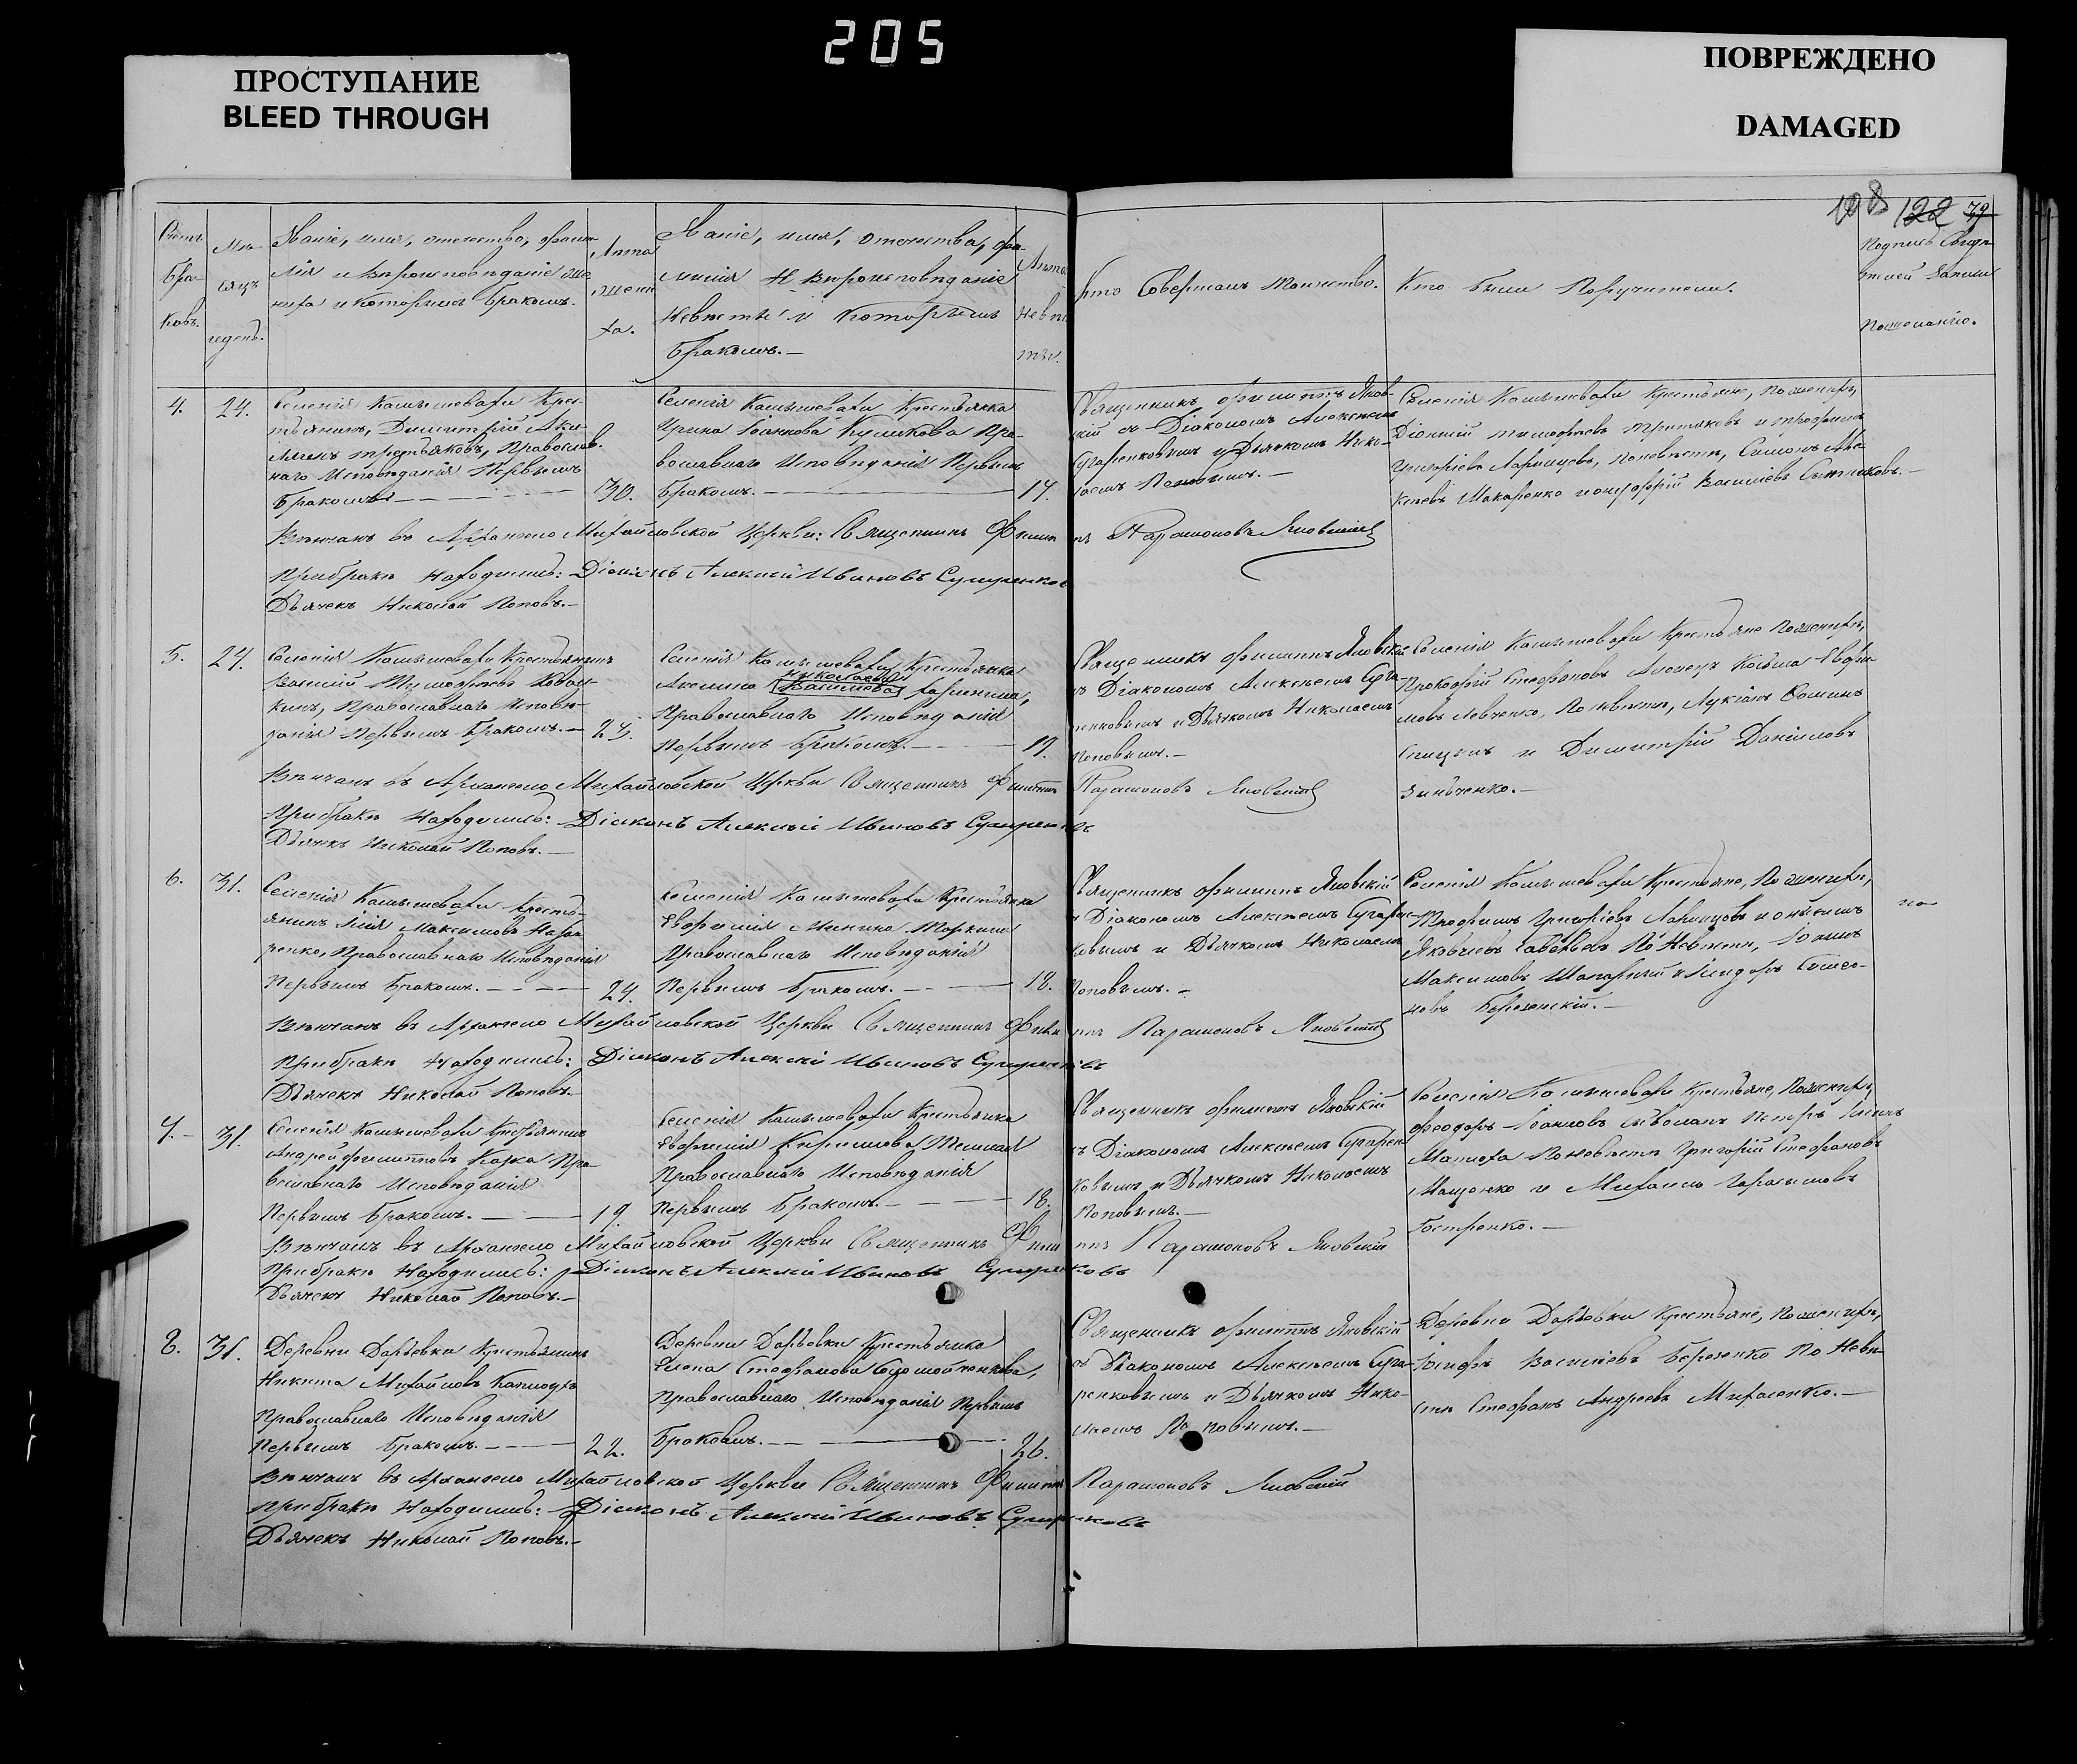 205
ПРОСТУПАНИЕ
BLEED THROUGH
ПОВРЕЖДЕНО
DAMAGED
198 122 79
Счетъ
бра-
ковъ.
Мѣ-
сяцъ
и день.
Званіе, имя, отечество, фами-
лія и Вѣроисповѣданіе же-
ниха и которымъ бракомъ.
Лѣта
жени-
ха.
Званіе, имя, отечество, фа-
милія и Вѣроисповѣданіе
Невѣсты и которымъ
бракомъ.—
Лѣта
Невѣ-
сты.
Кто Совершалъ Таинство.
Кто были Поручители.
Подпись Свидѣ-
телей Записи
по желанію.
4.
24.
Селенія Камышевахи Крес-
тьянинъ, Димитрій
Третьяковъ, Православ-
наго Исповѣданія Первымъ
бракомъ.
30.
Селенія Камышевахи Крестьянка
Ирина Іоаннова Куликова Пра-
вославнаго Исповѣданія Первымъ
бракомъ.—
17.
Священникъ Филиппъ Яков-
скій съ Діакономъ Алексѣемъ
и Дьячкомъ Нико-
лаемъ Поповымъ.—
Селенія Камышевахи Крестьяне, По женихѣ,
Діонисій Тимофѣевъ Третьяковъ и Трофимъ
Григоріевъ По невѣстѣ, Симонъ Але-
ксѣевъ Макаренко и Онуфрій Василіевъ
Вѣнчалъ въ Архангело Михайловской Церкви: Священникъ Филиппъ Парамоновъ Яковскій
При бракѣ Находились: Діаконъ Алексѣй Ивановъ
Дьячекъ Николай Поповъ.—
5.
24.
Селенія Камышевахи Крестьянинъ
Василій Тимофѣевъ
Православнаго Исповѣ-
данія Первымъ бракомъ.—
23.
Селенія Камышевахи Крестьянка
Николаева
Акилина Василіева
Православнаго Исповѣданія
Первымъ бракомъ.—
17.
Священникъ Филиппъ Яковскій
съ Діакономъ Алексѣемъ
и Дьячкомъ Николаемъ
Поповымъ.—
Селенія Камышевахи Крестьяне По женихѣ,
Прокофій Стефановъ Козьма Евфи-
мовъ Левченко, По невѣстѣ, Лукіанъ Фоминъ
и Димитрій Даніиловъ
Зинченко.—
Вѣнчалъ въ Архангело Михайловской Церкви Священникъ Филиппъ Парамоновъ Яковскій
При бракѣ Находились: Діаконъ Алексѣй Ивановъ
Дьячекъ Николай Поповъ.—
6.
31.
Селенія Камышевахи Кресть-
янинъ Илія Максимовъ Наза-
ренко, Православнаго Исповѣданія
Первымъ бракомъ.
24.
Селенія Камышевахи Крестьянка
Евфимія Минина
Православнаго Исповѣданія
Первымъ бракомъ.
18.
Священникъ Филиппъ Яковскій
съ Діакономъ Алексѣемъ
и Дьячкомъ Николаемъ
Поповымъ.—
Селенія Камышевахи Крестьяне, По женихѣ,
Трофимъ Григоріевъ и Онисимъ
Яковлевъ По Невѣстѣ, Іоаннъ
Максимовъ и Исидоръ
Березенскій.—
Вѣнчалъ въ Архангело Михайловской Церкви Священникъ Филиппъ Парамоновъ Яковскій
При бракѣ Находились: Діаконъ Алексѣй Ивановъ
Дьячекъ Николай Поповъ.—
7.—
31.
Селенія Камышевахи Крестьянинъ
Андрей Филипповъ Пра-
вославнаго Исповѣданія
Первымъ бракомъ.
19.
Селенія Камышевахи Крестьянка
Евфимія Кирилова
Православнаго Исповѣданія
Первымъ бракомъ.
18.
Священникъ Филиппъ Яковскій
съ Діакономъ Алексѣемъ
и Дьячкомъ Николаемъ
Поповымъ.—
Селенія Камышевахи Крестьяне, По женихѣ,
Феодоръ Іоанновъ Петръ
По невѣстѣ Григорій Стефановъ
Мащенко и Михаилъ Герасимовъ
Вѣнчалъ въ Архангело Михайловской Церкви Священникъ Филиппъ Парамоновъ Яковскій
При бракѣ Находились: Діаконъ Алексѣй Ивановъ
Дьячекъ Николай Поповъ.—
8.
31.
Деревни Дарьевки Крестьянинъ
Никита Михайловъ
Православнаго Исповѣданія
Первымъ бракомъ.
22.
Деревни Дарьевки Крестьянка
Елена Стефанова
Православнаго Исповѣданія Первымъ
бракомъ.
26.
Священникъ Филиппъ Яковскій
съ Діакономъ Алексѣемъ
и Дьячкомъ Нико-
лаемъ Поповымъ.—
Деревни Дарьевки Крестьяне, По женихѣ,
Іосифъ Василіевъ Березенко По Невѣ-
стѣ Стефанъ Андреевъ Михаленко.—
Вѣнчалъ въ Архангело Михайловской Церкви Священникъ Филиппъ Парамоновъ Яковскій
При бракѣ Находились: Діаконъ Алексѣй Ивановъ
Дьячекъ Николай Поповъ.—